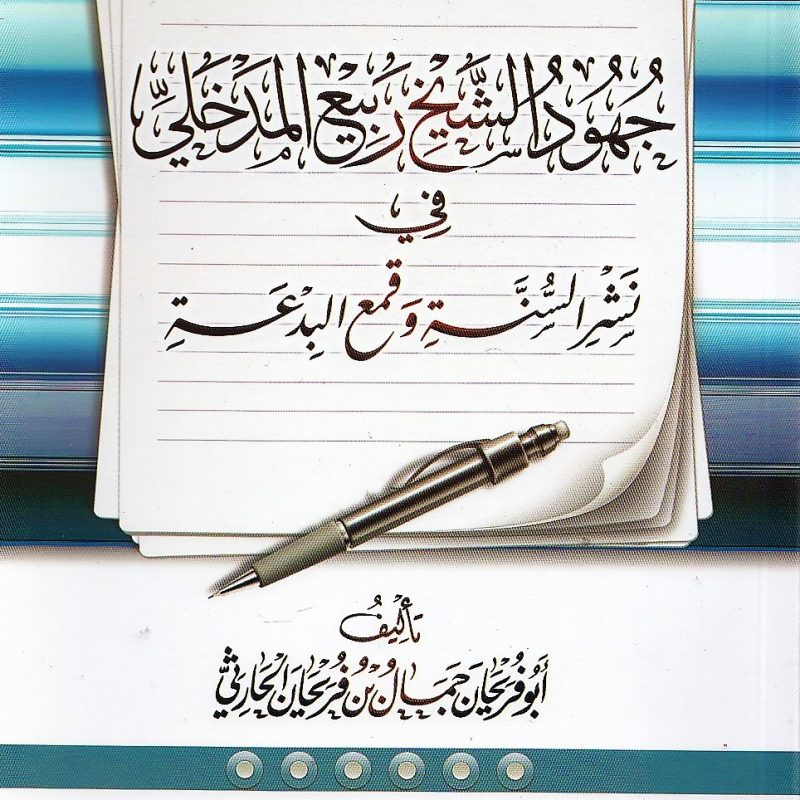 جُهُودُ الشَّيْخِ رَبِيعِ المَدْخَلِيِّ
فِي
نَشْرِ السُّنَّةِ وَقَمْعِ البِدْعَةِ
تَأْلِيفُ
أَبُو فُرَيْحَانَ جَمَالُ بْنُ فُرَيْحَانَ الحَارِثِيُّ